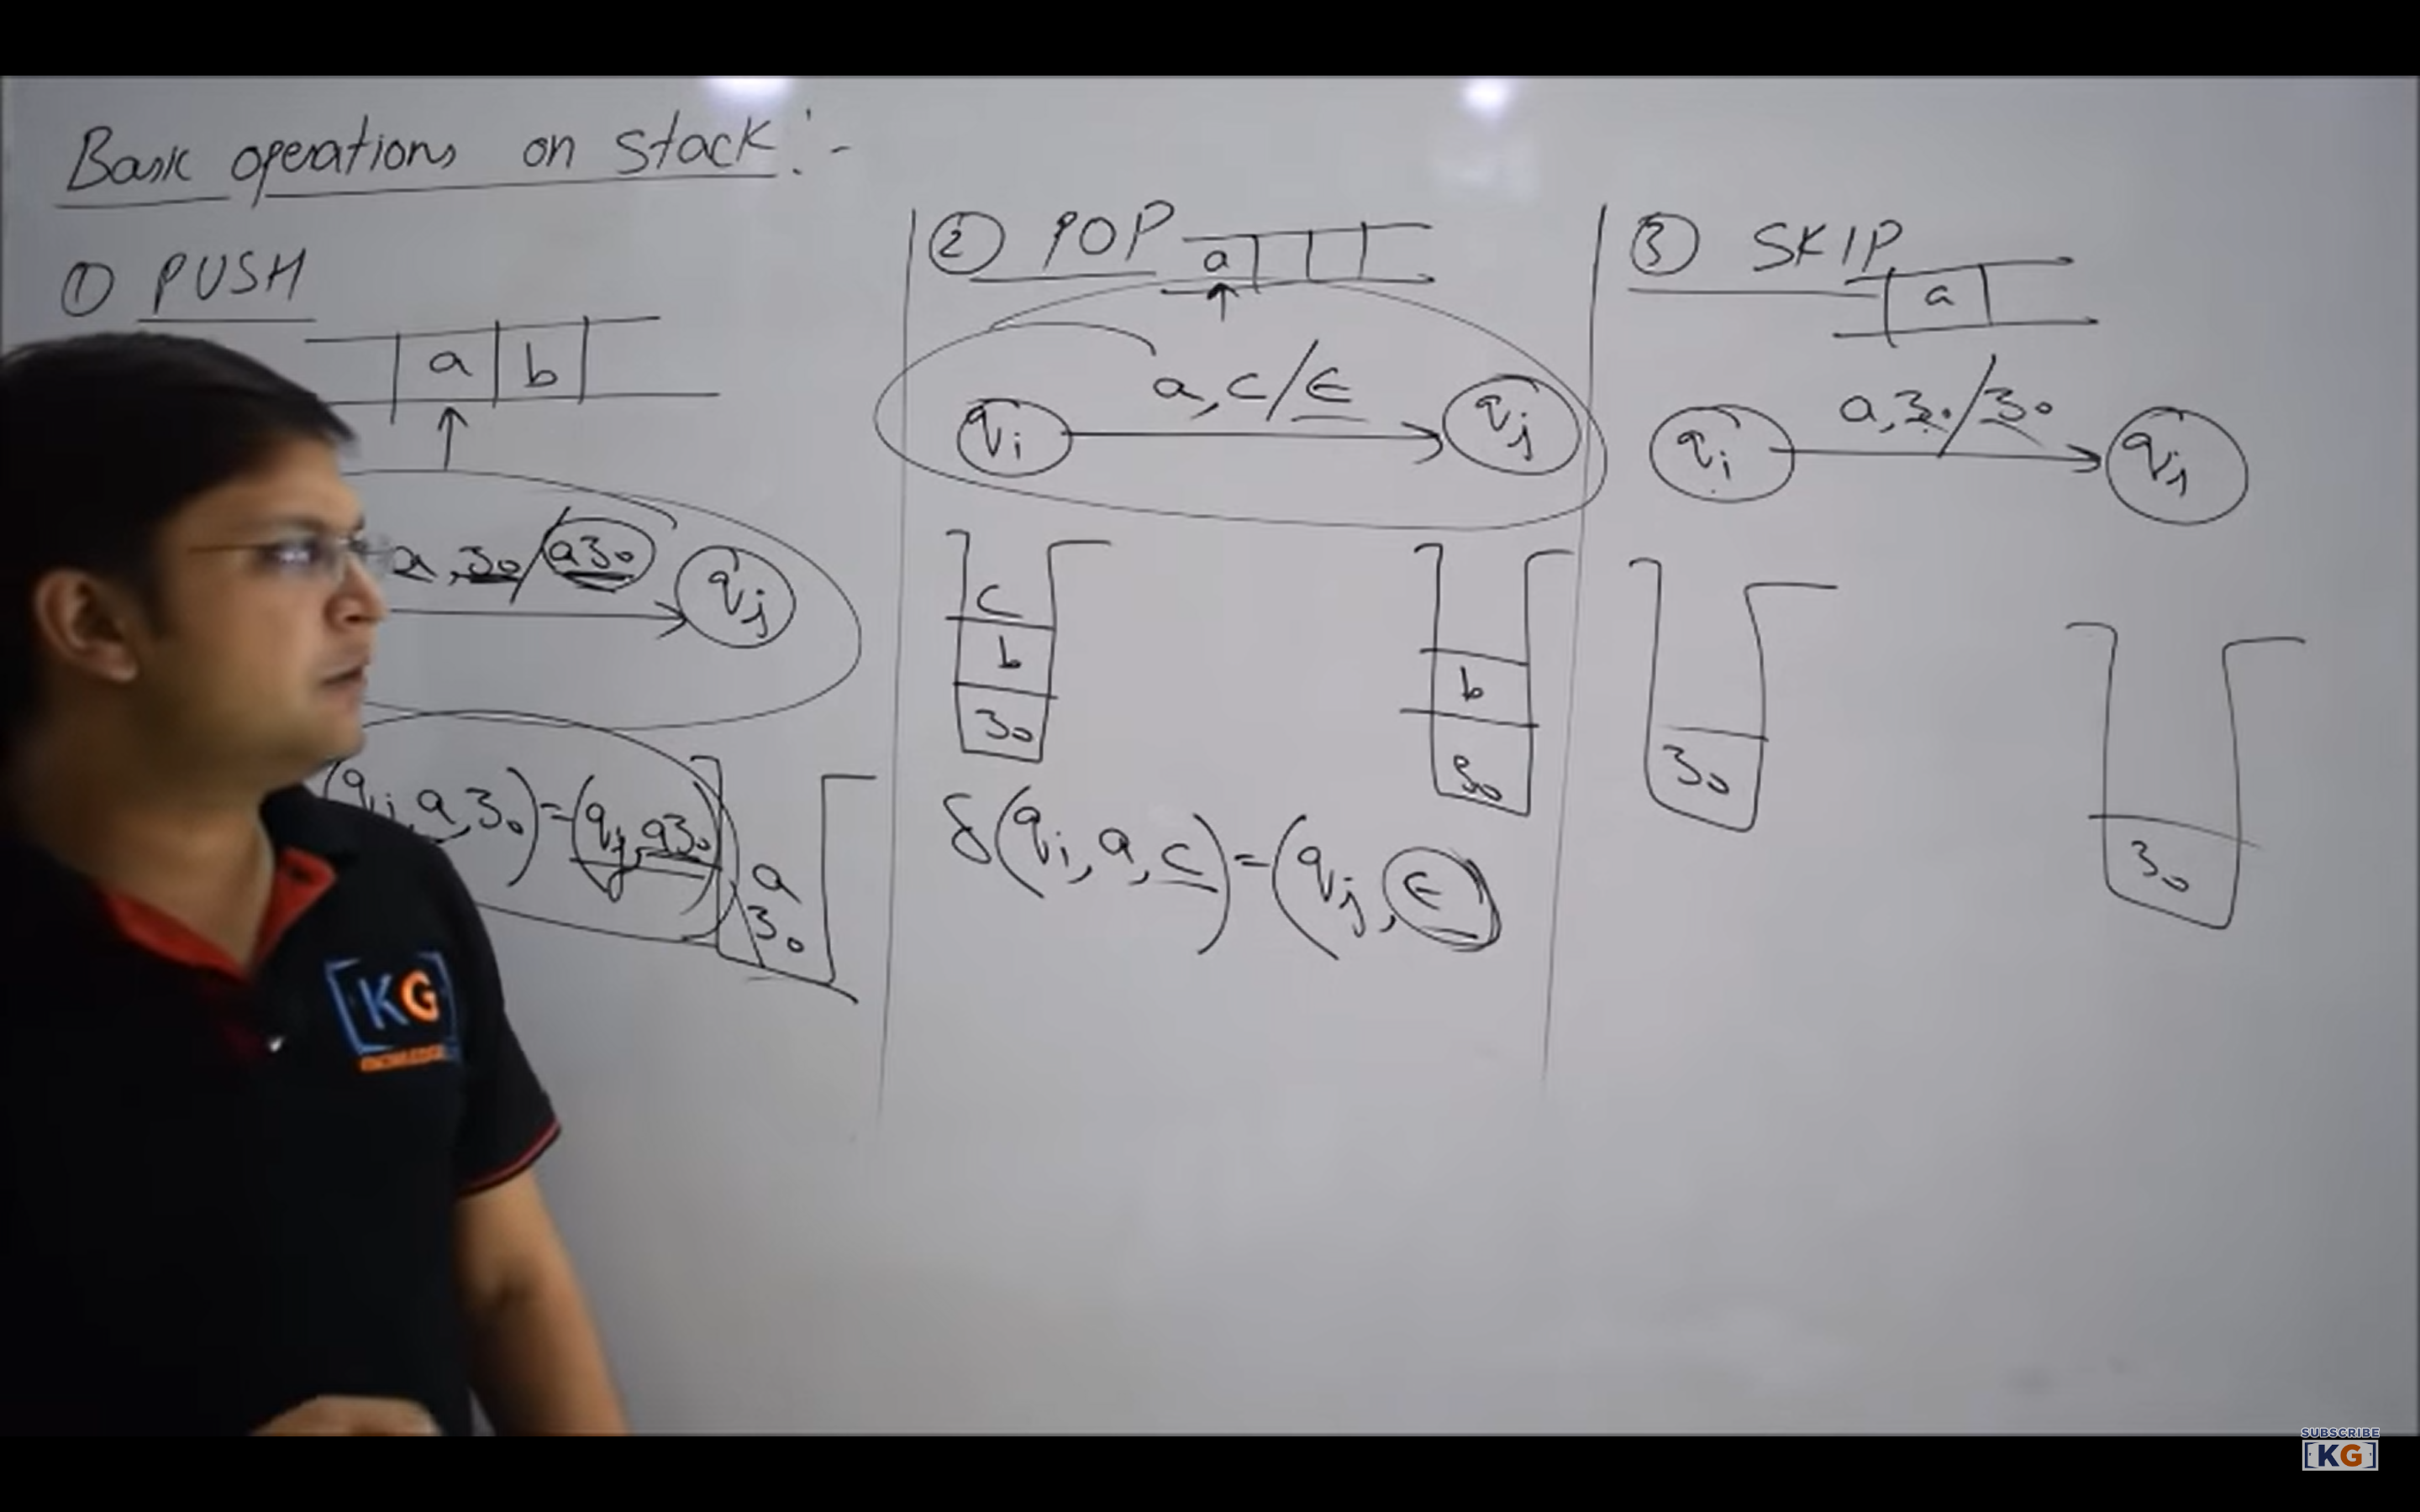 Basic operations on Stack :-
① PUSH
a b
a, z₀ / a z₀
qⱼ
(qᵢ, a, z₀) = (qⱼ, a z₀)
a
z₀
② POP
a
a, c / ϵ
qᵢ qⱼ
c
b
z₀
b
z₀
δ(qᵢ, a, c) = (qⱼ, ϵ)
③ SKIP
a
a, z₀ / z₀
qᵢ qⱼ
z₀
z₀
KG
SUBSCRIBE
KG